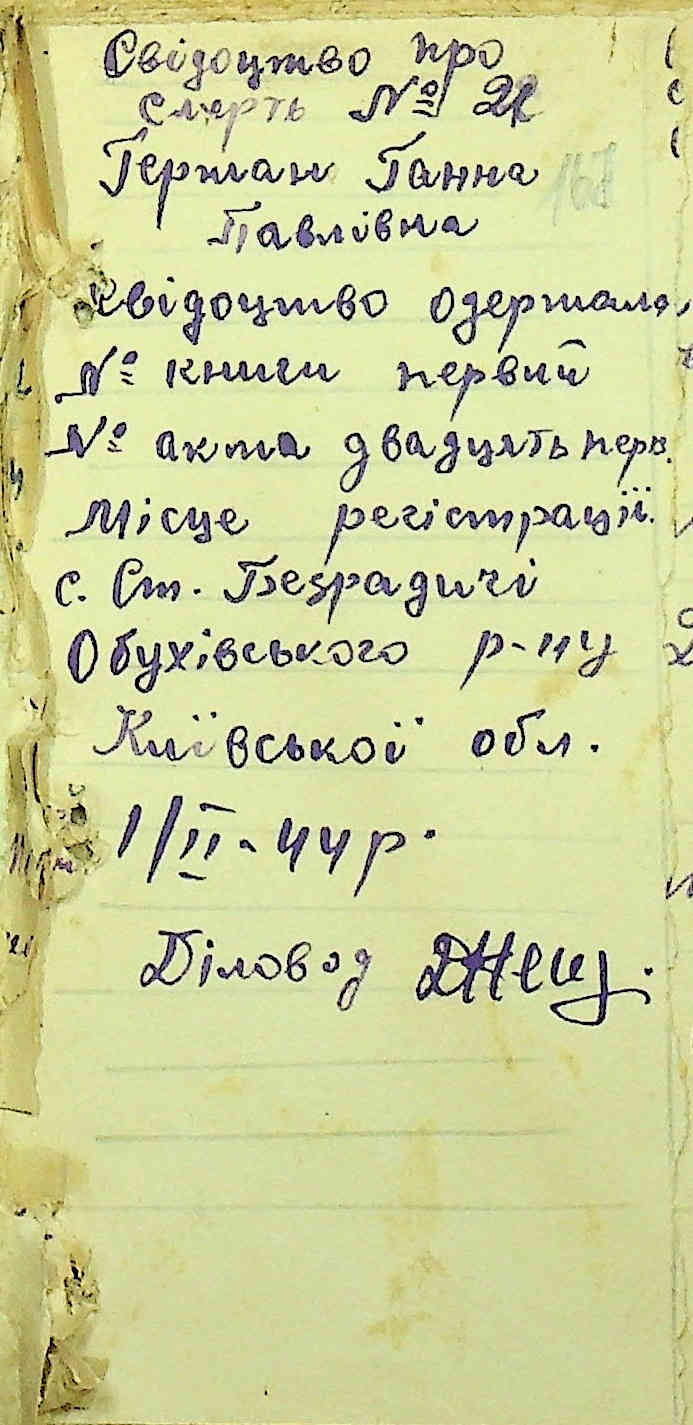 Свідоцтво про
смерть № 21
Герман Ганна
Павлівна
свідоцтво одержала
№ книги первий
№ акта двадцять перв.
Місце регістрації
с. Ст. Безрадичі
Обухівського р-ну
Київської обл.
1/II-44 р.
Діловод